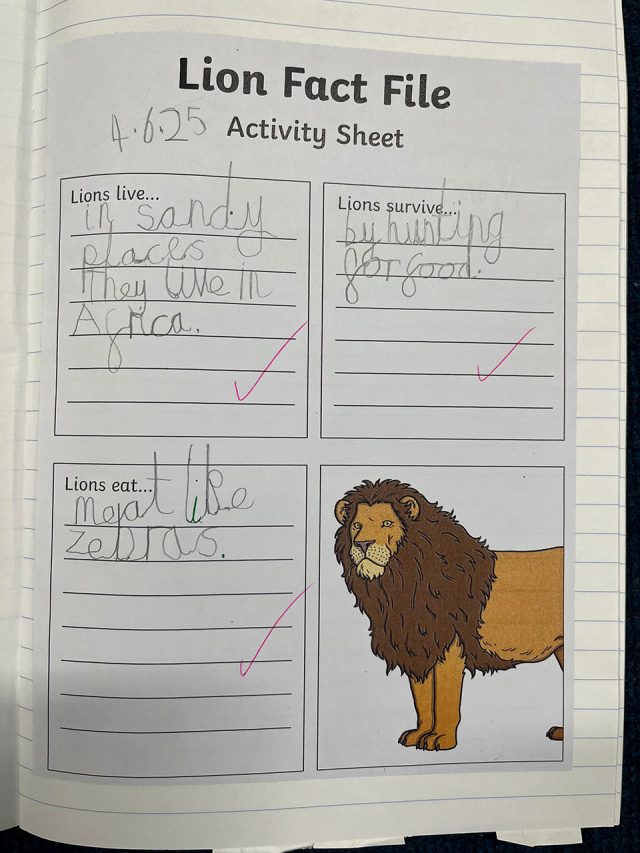 Lion Fact File
4.6.25 Activity Sheet
Lions live...
in sandy
places
They live in
Africa.
Lions survive...
by hunting
for food.
Lions eat...
meat like
zebras.